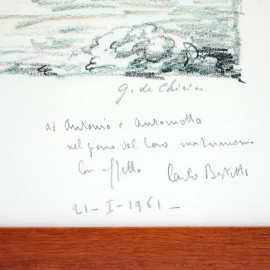 G. de Chirico
ad Antonio e Antonietta
nel giorno del loro matrimonio
con affetto Carlo
21-I-1961-